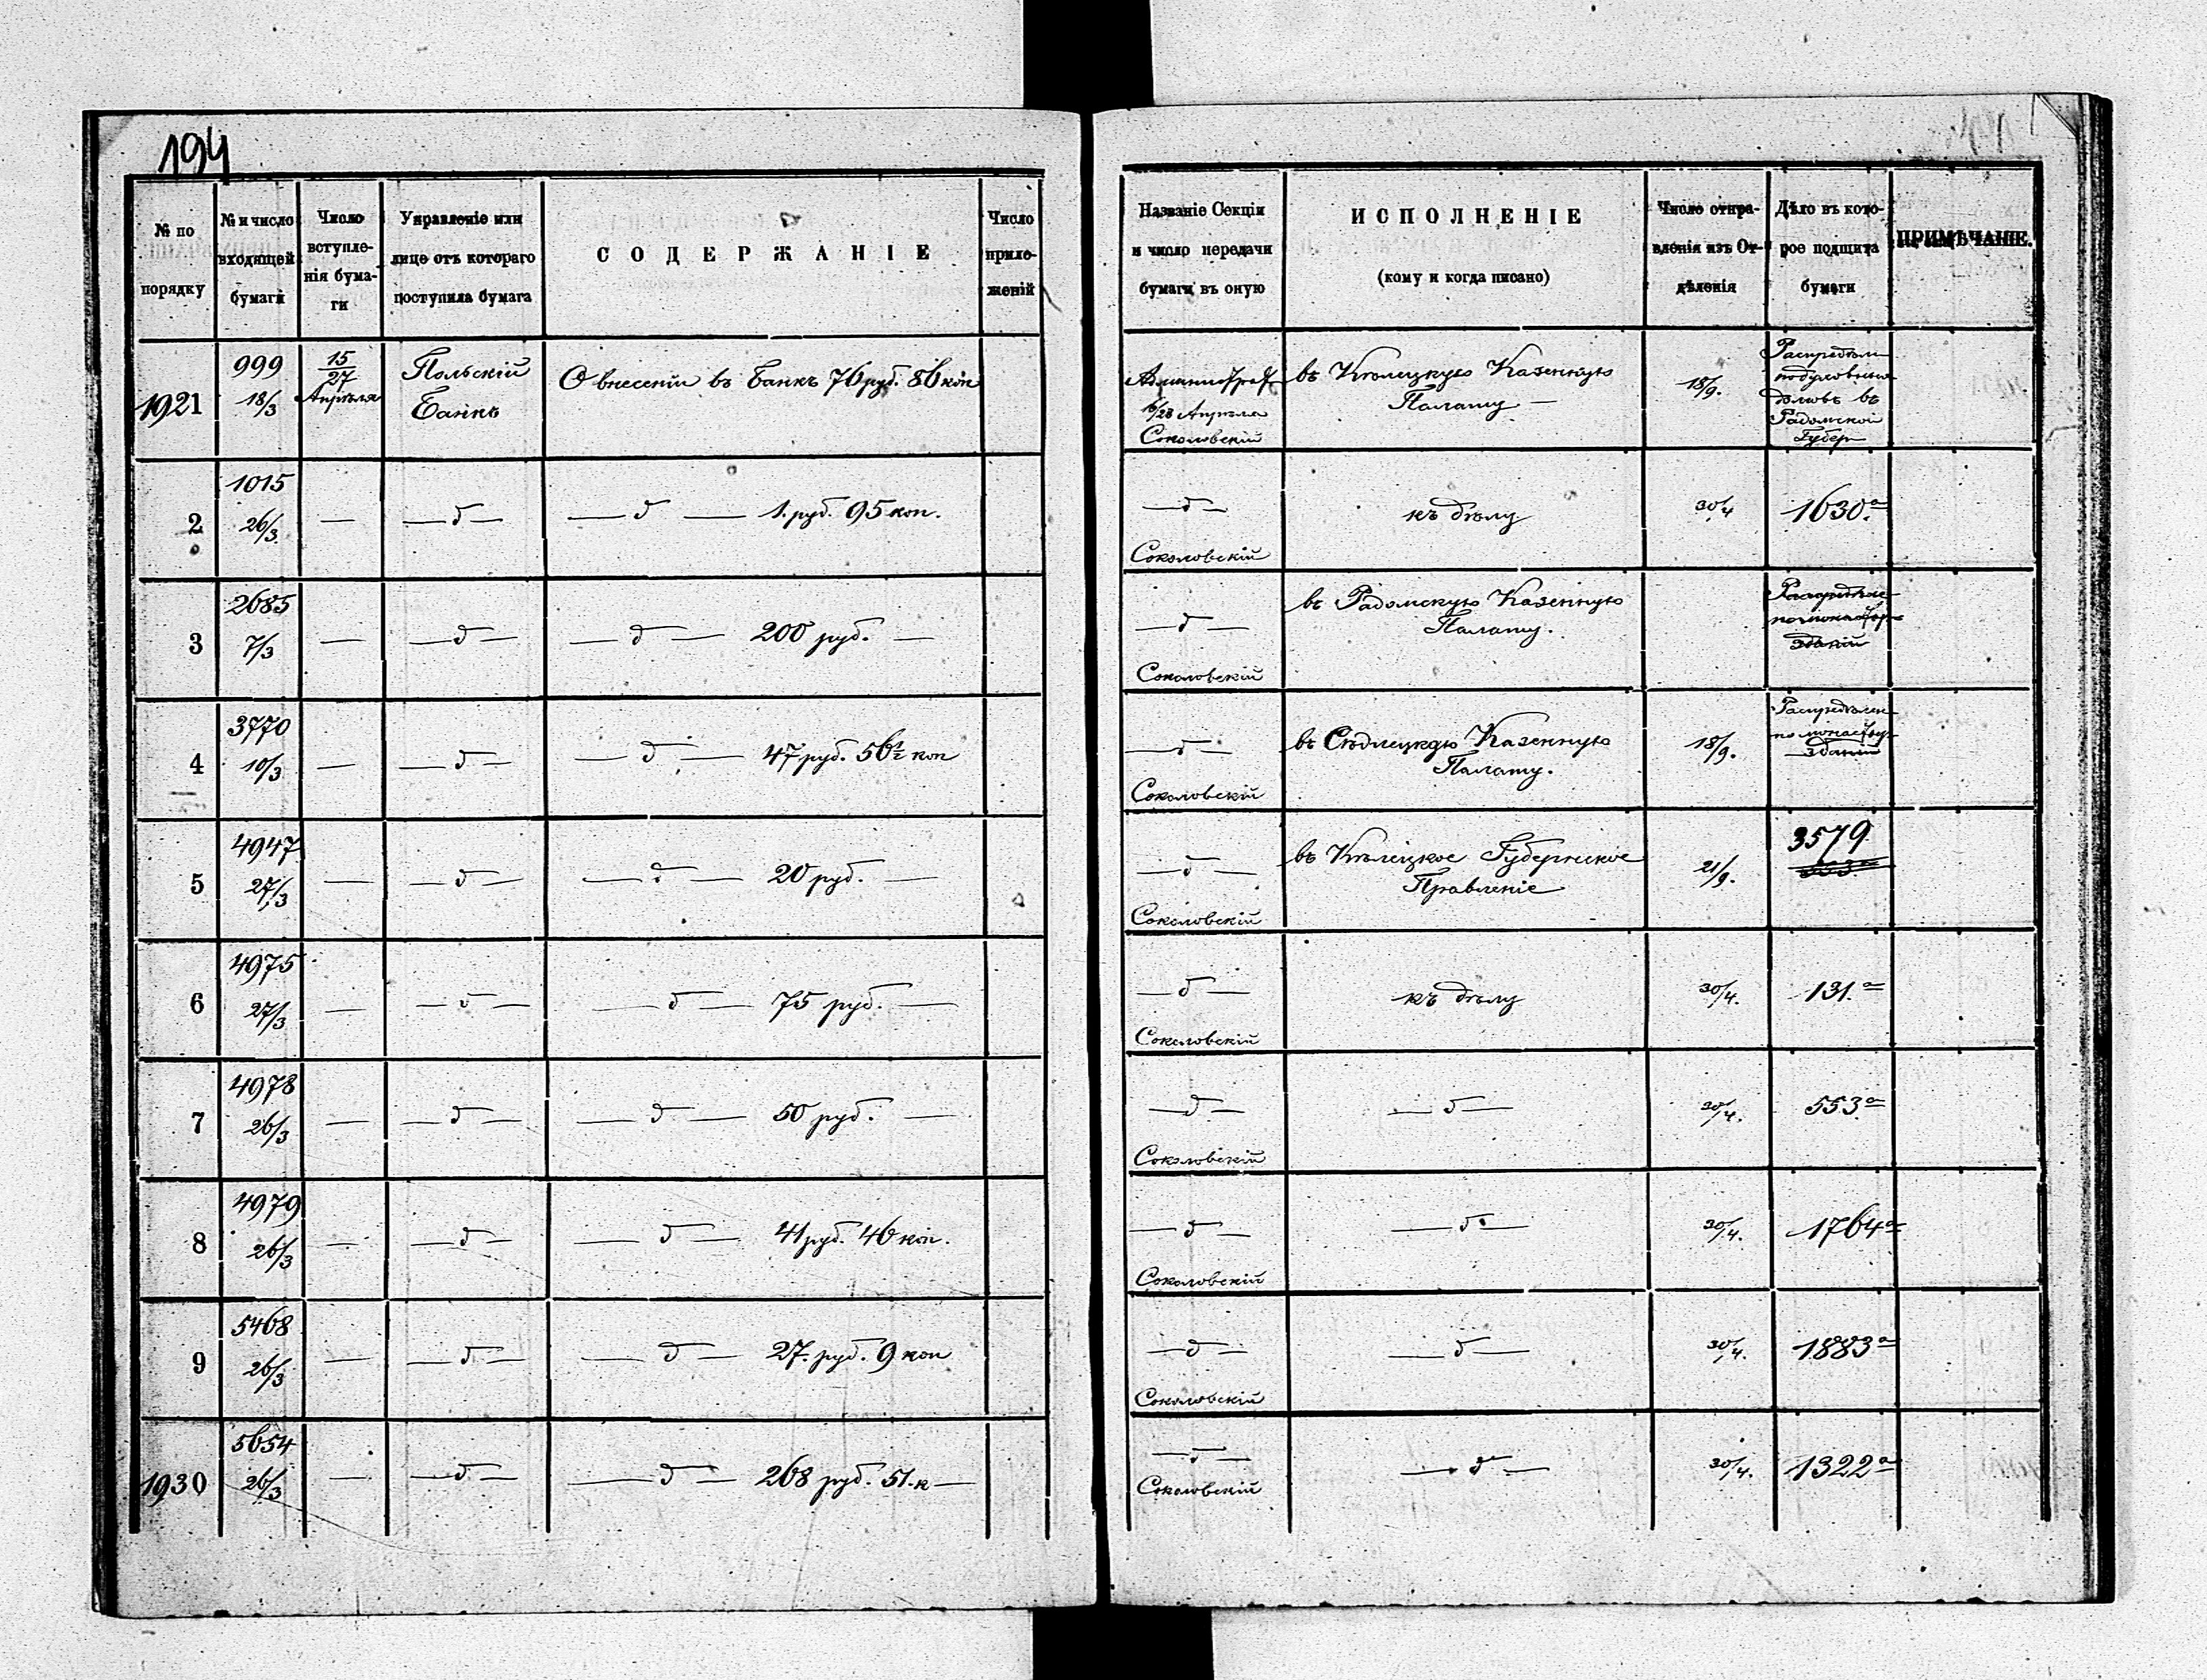 194
№ по порядку
№ и число входящей бумаги
Число вступле-нія бума-ги
Управленіе или лице отъ котораго поступила бумага
СОДЕРЖАНІЕ
Число прило-женій
Названіе Секціи и число передачи бумаги въ оную
ИСПОЛНЕНІЕ
(кому и когда писано)
Число отпра-вленія изъ От-дѣленія
Дѣло въ кото-рое подшита бумаги
ПРИМѢЧАНІЕ.
1921
999
18/3
15/27 Апрѣля
Польскій
Банкъ
О внесеніи въ Банкъ 76 руб. 86 коп
16/28 Апрѣля
Соколовскій
въ Кѣлецкую Казенную
Палату —
18/9.
въ
Радомской
Губер
2
1015
26/3
—
— д —
— д — 1. руб. 95 коп.
— д —
Соколовскій
къ дѣлу
30/4
1630.а
3
2685
7/3
—
— д —
— д — 200 руб. —
— д —
Соколовскій
въ Радомскую Казенную
Палату.
зданій
4
3770
10/3
—
— д —
— д — 47 руб. 56½ коп
— д —
Соколовскій
въ Сѣдлецкую Казенную
Палату.
18/9.
Распредѣлен
по монастыр
зданій
5
4947
27/3
—
— д —
— д — 20 руб. —
— д —
Соколовскій
въ Кѣлецкое Губернское
Правленіе
21/9.
3579
553
6
4975
27/3
—
— д —
— д — 75 руб. —
— д —
Соколовскій
къ дѣлу
30/4.
131.а
7
4978
26/3
—
— д —
— д — 50 руб. —
— д —
Соколовскій
— д —
30/4.
553а
8
4979
26/3
—
— д —
— д — 41 руб. 46 коп.
— д —
Соколовскій
— д —
30/4.
1764а
9
5468
26/3
—
— д —
— д — 27. руб. 9 коп
— д —
Соколовскій
— д —
30/4.
1883а
1930
5654
26/3
—
— д —
— д — 268 руб. 51. к —
— д —
Соколовскій
— д —
30/4.
1322а